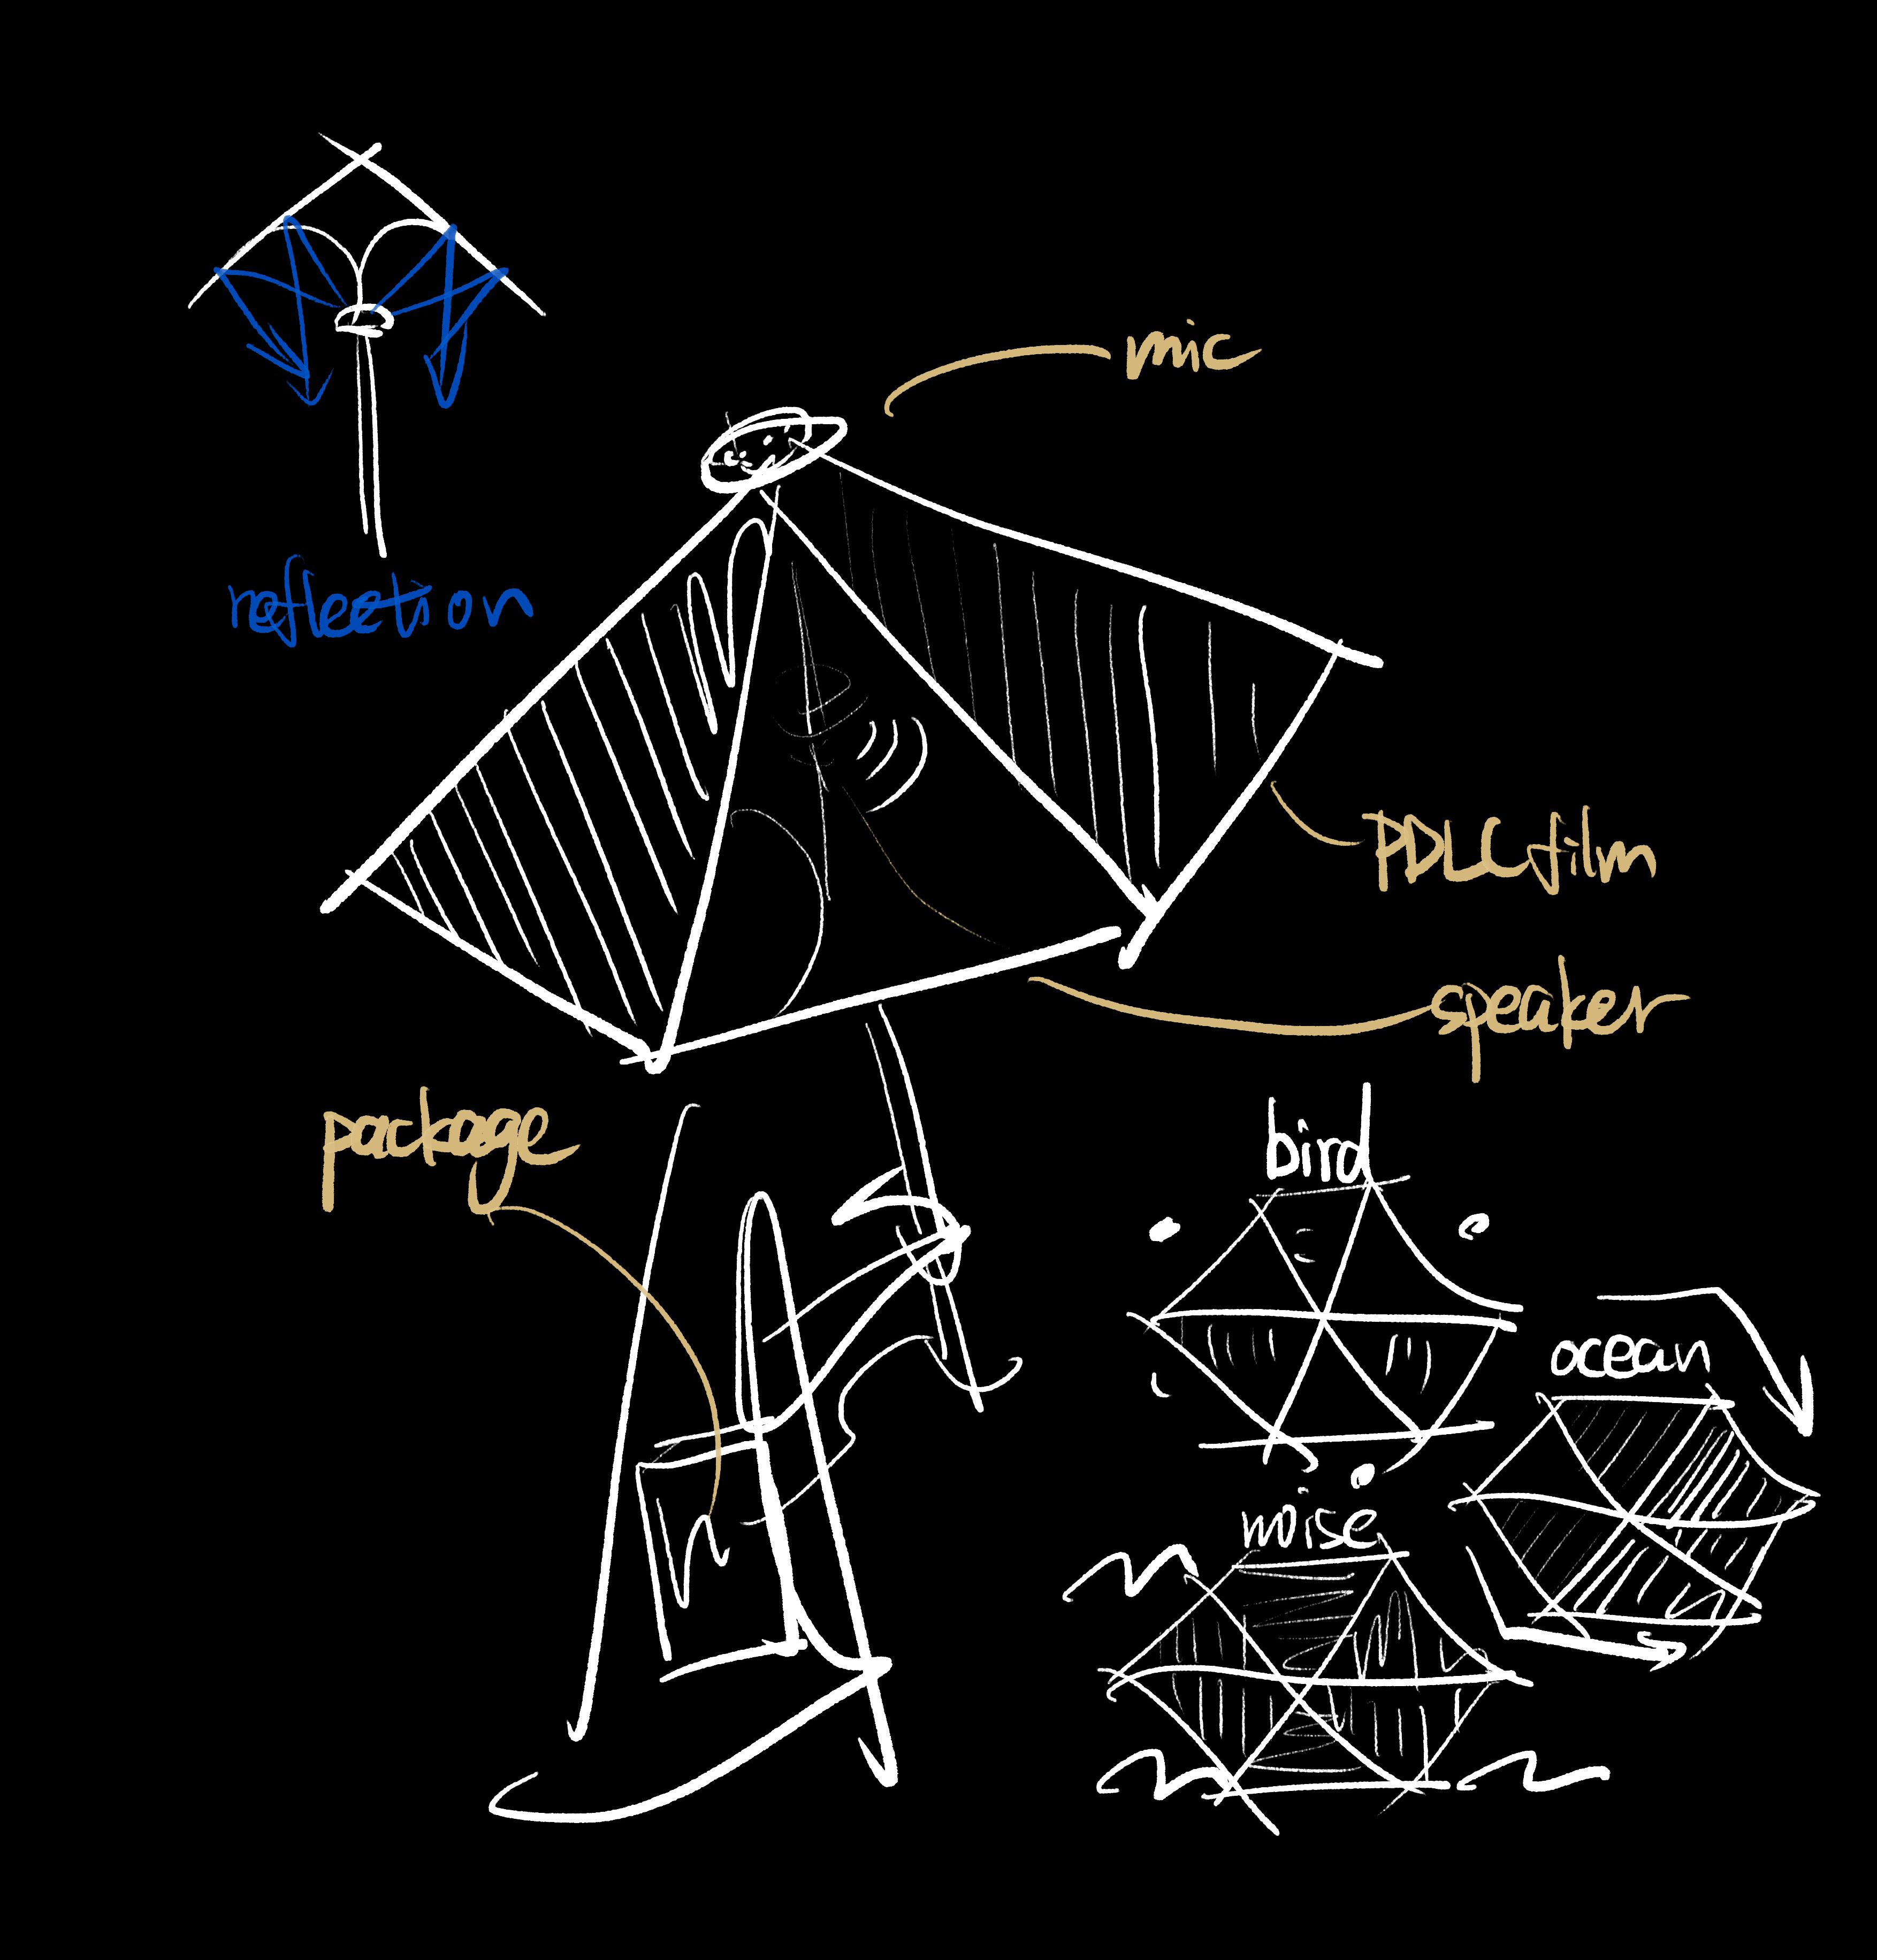 mic
reflection
PDLC film
speaker
package
bird
ocean
noise